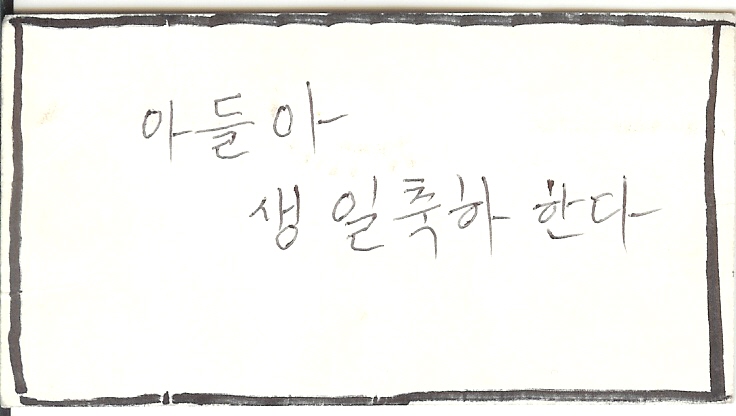 아들아
생일축하 한다